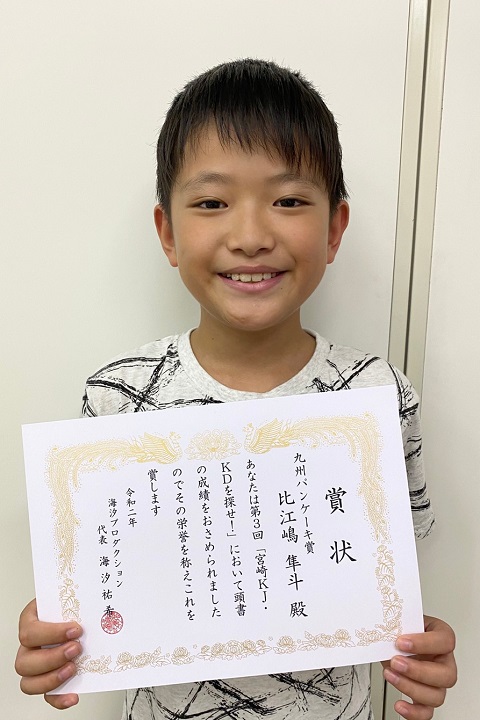 賞状
九州パンケーキ賞
比江嶋 隼斗 殿
あなたは第3回「宮崎KJ・
KDを探せ!」において頭書
の成績をおさめられました
のでその栄誉を称えこれを
賞します
令和二年
海汐プロダクション
代表 海汐祐希